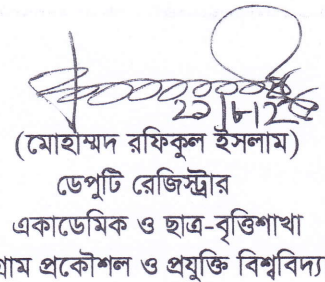 (মোহাম্মদ রফিকুল ইসলাম)
ডেপুটি রেজিস্ট্রার
একাডেমিক ও ছাত্র-বৃত্তিশাখা
গ্রাম প্রকৌশল ও প্রযুক্তি বিশ্ববিদ্য